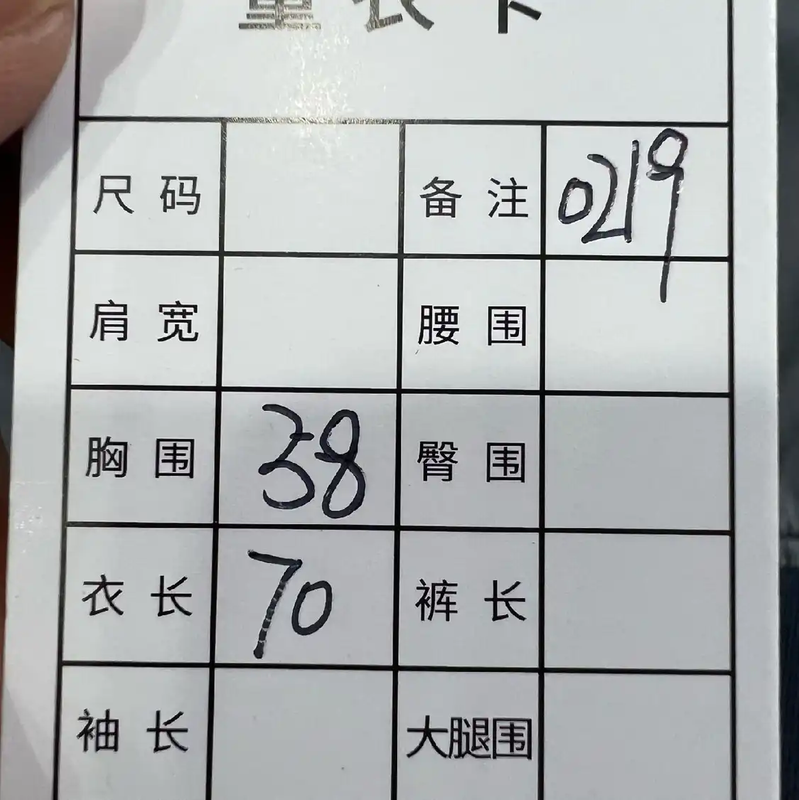 量衣卡
尺码 备注 0219
肩宽 腰围
胸围 38 臀围
衣长 70 裤长
袖长 大腿围